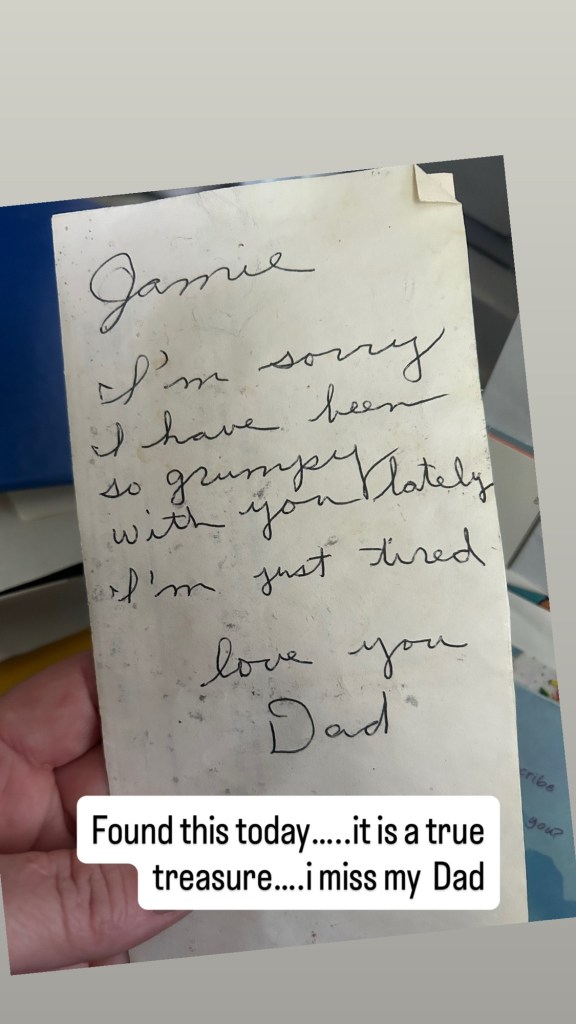 Jamie
I'm sorry
I have been
so grumpy
with you lately
I'm just tired
love you
Dad
Found this today.....it is a true
treasure....i miss my Dad
cribe
you?